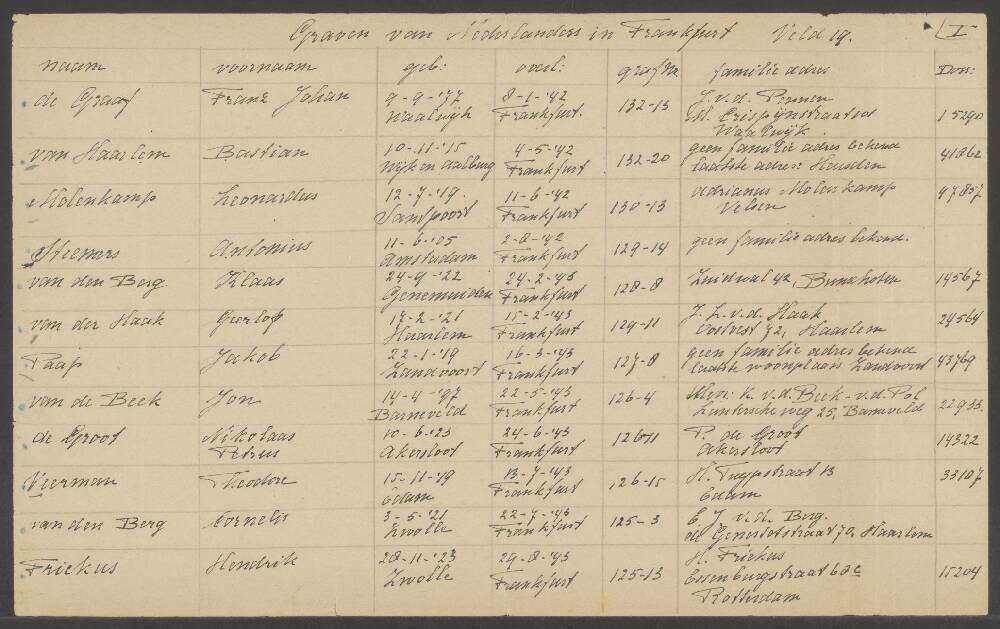 Graven van Nederlanders in Frankfurt Veld 19. I
naam voornaam geb: overl: graf Nr familie adres Dos:
de Graaf Franz Johan 9-9-'77 8-1-'42 132-13 J. v. d. Pennen 15290
Waalwijk Frankfurt. St. Crispijnstraat
Waalwijk.
van Haarlem Bastian 10-11-'15 4-5-'42 132-20 geen familie adres bekend 41862
Wijk en Aalburg Frankfurt laatste adres: Heusden
Molenkamp Leonardus 12-7-'19. 11-6-'42 130-13 Adrianus Molenkamp 47857
Santpoort Frankfurt Velsen
Steeners Antonius 11-6-'05 2-8-'42 129-14 geen familie adres bekend.
Amsterdam Frankfurt
van den Berg Klaas 24-9-'22 24-2-'43 128-8 Zuidwal 42, 14567
Genemuiden Frankfurt
van der Haak Geerlof 17-2-'21 15-2-'43 129-11 J. L. v. d. Haak 24564
Haarlem Frankfurt Oostvest 72, Haarlem
Paap Jakob 22-1-'19 16-3-'43 127-8 geen familie adres bekend 43769
Zandvoort Frankfurt laatste woonplaats Zandvoort
van de Beek Jon 14-4-'97 22-5-'43 126-4 K. v. d. Beek - v. d. Pol 22933.
Barneveld Frankfurt Lunterscheweg 25, Barneveld
de Groot Nikolaas 10-6-'23 24-6-'43 126-11 P. de Groot 14322
Petrus Akersloot Frankfurt Akersloot
Veerman Theodore 15-11-'19 13-7-'43 126-15 H. Tuypstraat 13 33107
Edam Frankfurt Edam
van den Berg Cornelis 3-5-'21 22-7-'43 125-3 C. J. v. d. Berg.
Zwolle Frankfurt de Genestetstraat 70, Haarlem
Friekus Hendrik 28-11-'23 29-8-'43 125-13 H. Friekus 15204
Zwolle Frankfurt Essenburgstraat 63c
Rotterdam